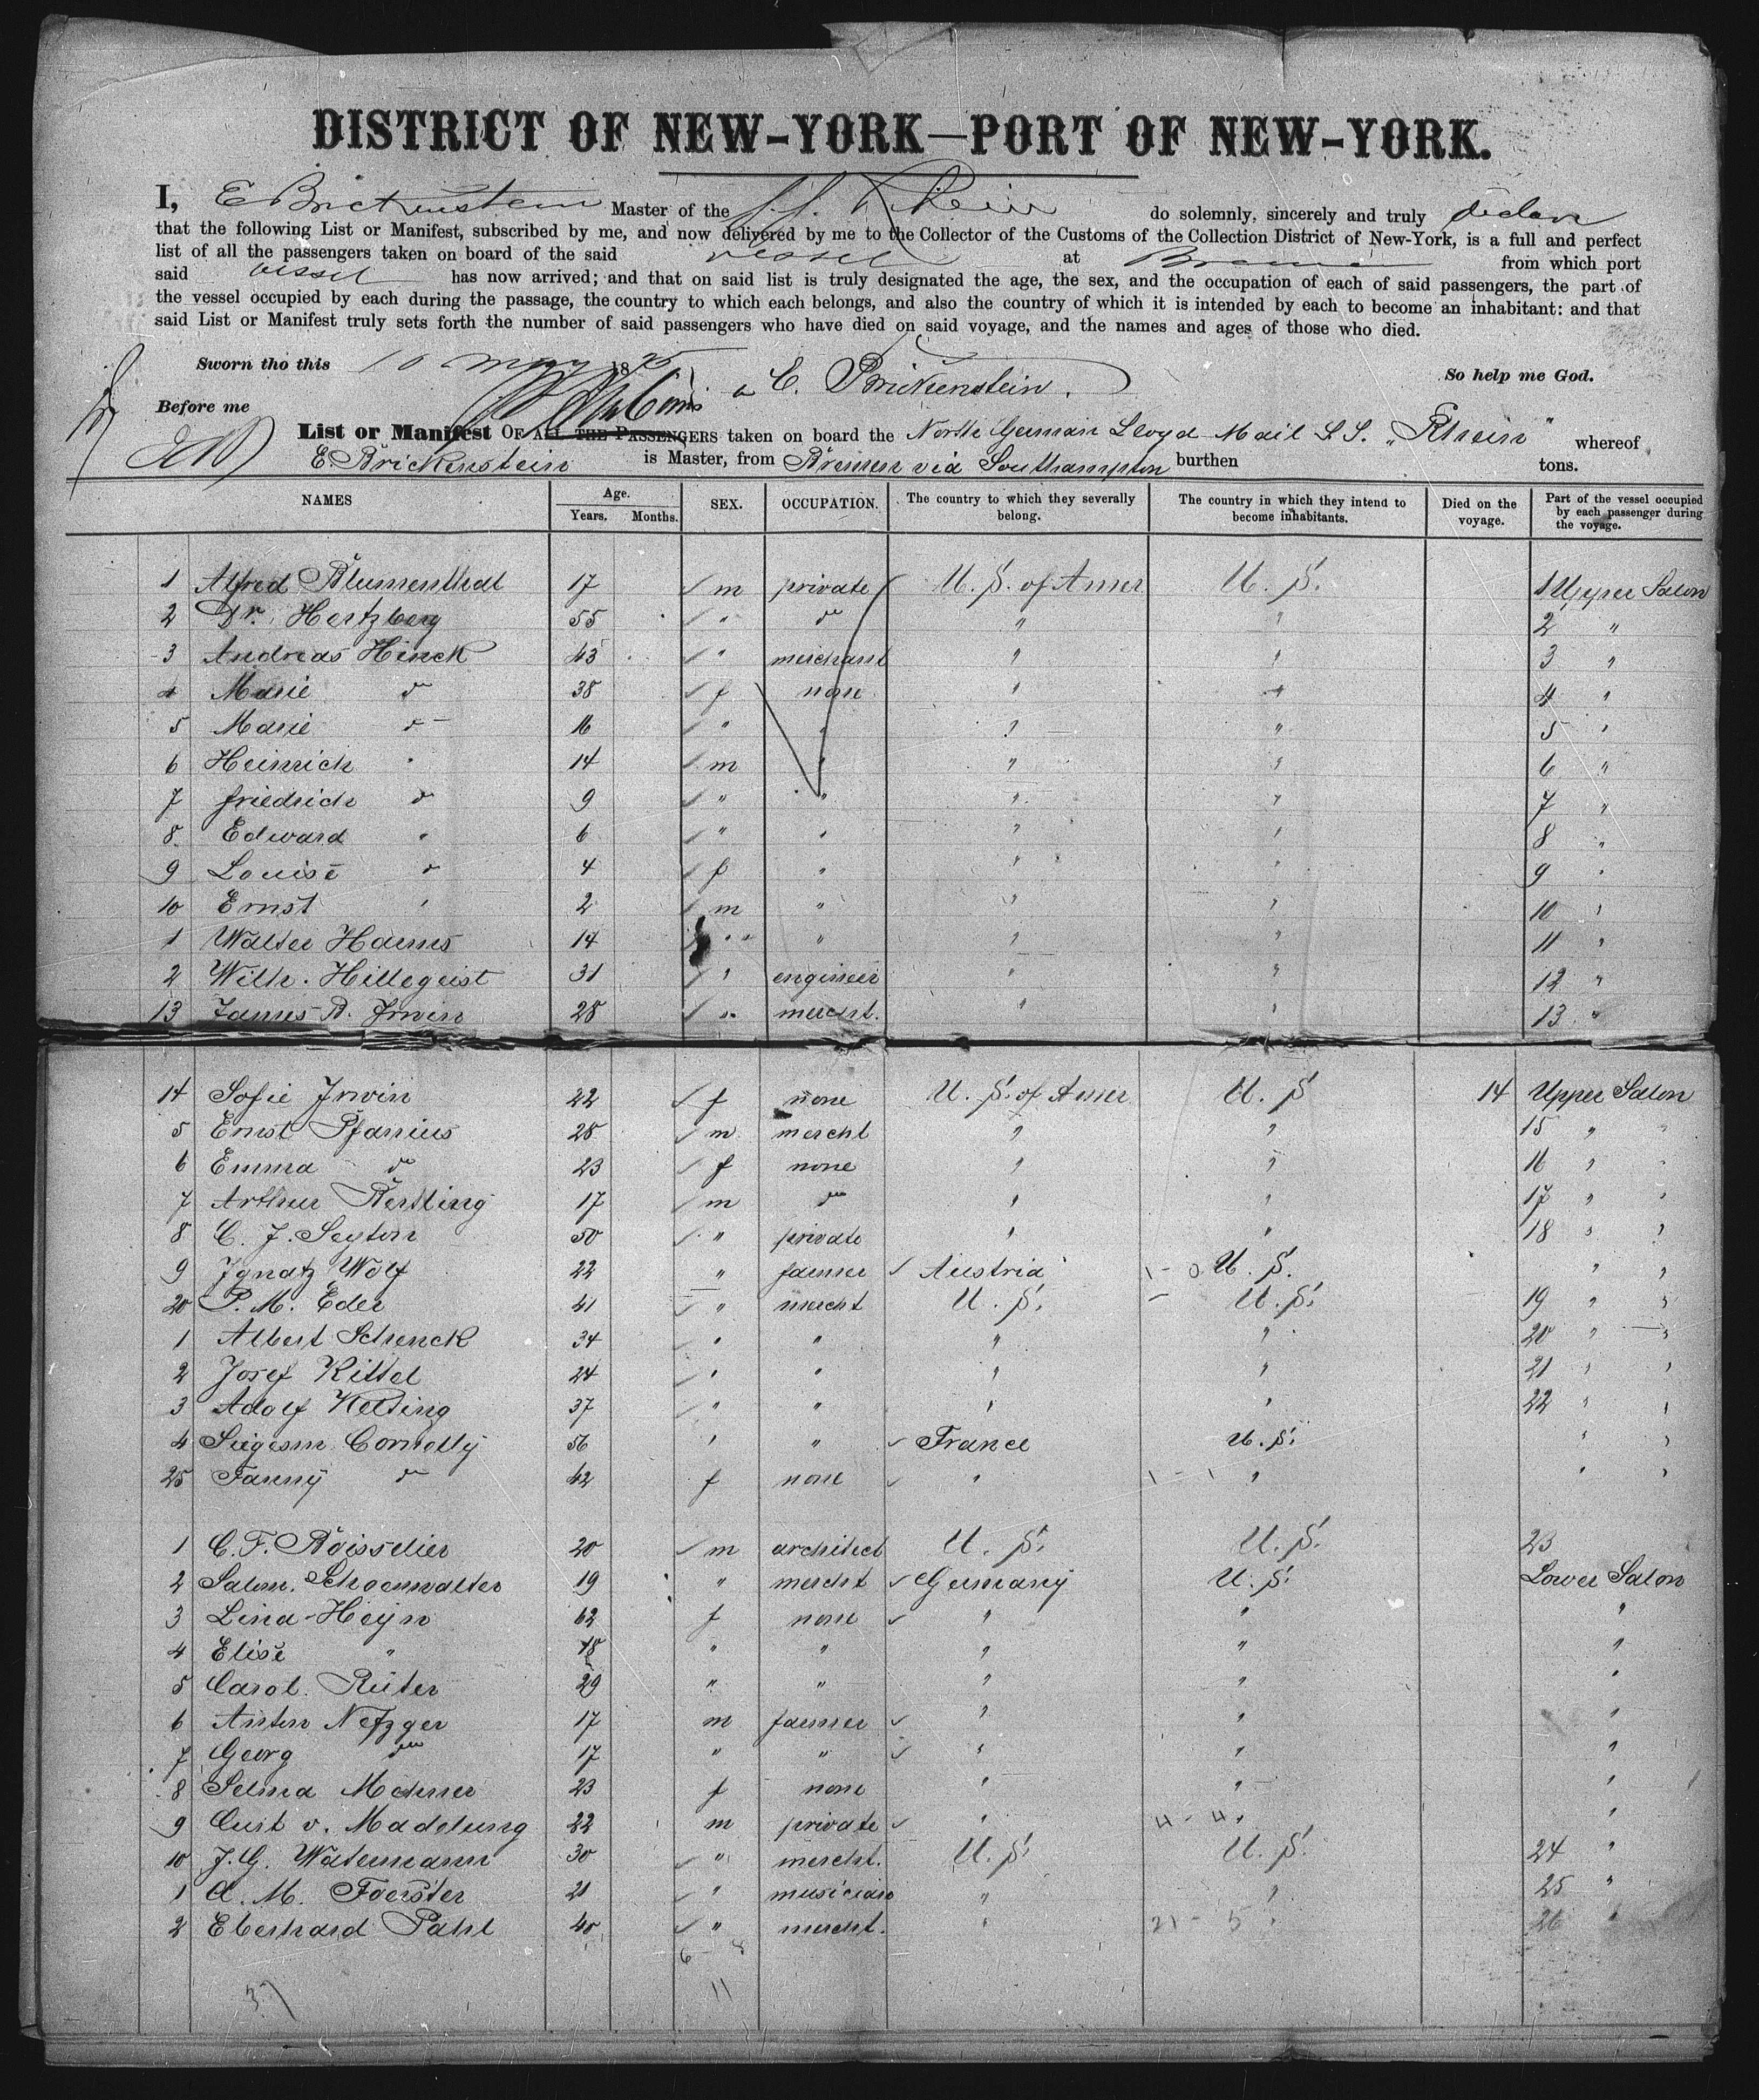 DISTRICT OF NEW-YORK—PORT OF NEW-YORK.
I, E Brickenstein Master of the S.S. Rhein do solemnly, sincerely and truly declare
that the following List or Manifest, subscribed by me, and now delivered by me to the Collector of the Customs of the Collection District of New-York, is a full and perfect
list of all the passengers taken on board of the said vessel at Bremen from which port
said vessel has now arrived; and that on said list is truly designated the age, the sex, and the occupation of each of said passengers, the part of
the vessel occupied by each during the passage, the country to which each belongs, and also the country of which it is intended by each to become an inhabitant: and that
said List or Manifest truly sets forth the number of said passengers who have died on said voyage, and the names and ages of those who died.
Sworn tho this 10 May 1875 E. Brickenstein. So help me God.
Before me
List or Manifest OF ALL THE PASSENGERS taken on board the North German Lloyd Mail S.S. „Rhein" whereof
E. Brickenstein is Master, from Bremen via Southampton burthen tons.
NAMES Age. Years. Months. SEX. OCCUPATION. The country to which they severally belong. The country in which they intend to become inhabitants. Died on the voyage. Part of the vessel occupied by each passenger during the voyage.
1 Alfred Blumenthal 17 m private U. S. of Amer U. S. 1 Upper Salon
2 Dr. Hertzberg 55 " do " " 2 "
3 Andreas Hinck 43 " merchant " " 3 "
4 Marie do 38 f none " " 4 "
5 Marie do 16 " " " " 5 "
6 Heinrich " 14 m " " " 6 "
7 Friedrich do 9 " " " " 7 "
8 Edward " 6 " " " " 8 "
9 Louise do 4 f " " " 9 "
10 Ernst " 2 m " " " 10 "
1 Walter Harms 14 " " " " 11 "
2 Wilh. Hillegeist 31 " engineer " " 12 "
13 James B. Irwin 28 " mercht. " " 13 "
14 Sofie Irwin 22 f none U. S. of Amer U. S 14 Upper Salon
5 Ernst Pfarrius 28 m mercht " " 15 " "
6 Emma do 23 f none " " 16 " "
7 Arthur 17 m do " " 17 " "
8 C. J. Seyton 50 " private " " 18 " "
9 Ignatz Wolf 22 " farmer Austria 1 - 0 U. S. " "
20 P. M. Eder 41 " mercht U. S. U. S. 19 " "
1 Albert Schenck 34 " " " " 20 " "
2 Josef Kittel 24 " " " " 21 " "
3 Adolf 37 " " " " 22 " "
4 Siegesm. 56 " " France U. S. " "
25 Fanny do 42 f none " 1 - 1 " " "
1 C. F. Boisselier 20 m architect U. S. U. S. 23
2 Salom. Schoenwalter 19 " mercht Germany U. S. Lower Salon
3 Lina Heyn 62 f none " " "
4 Elise " 18 " " " " "
5 Carol. Rüter 29 " " " " "
6 Anton Netzger 17 m farmer " " "
7 Georg do 17 " " " " "
8 Selma 23 f none " " "
9 Curt v. Madelung 22 m private " 4 - 4 " "
10 J. G. Watermann 30 " mercht. U. S. U. S. 24 "
1 A. M. Foerster 21 " musician " " 25 "
2 Eberhard Pahl 40 " mercht. " 21 - 5 " 26 "
6 - 8
37 11